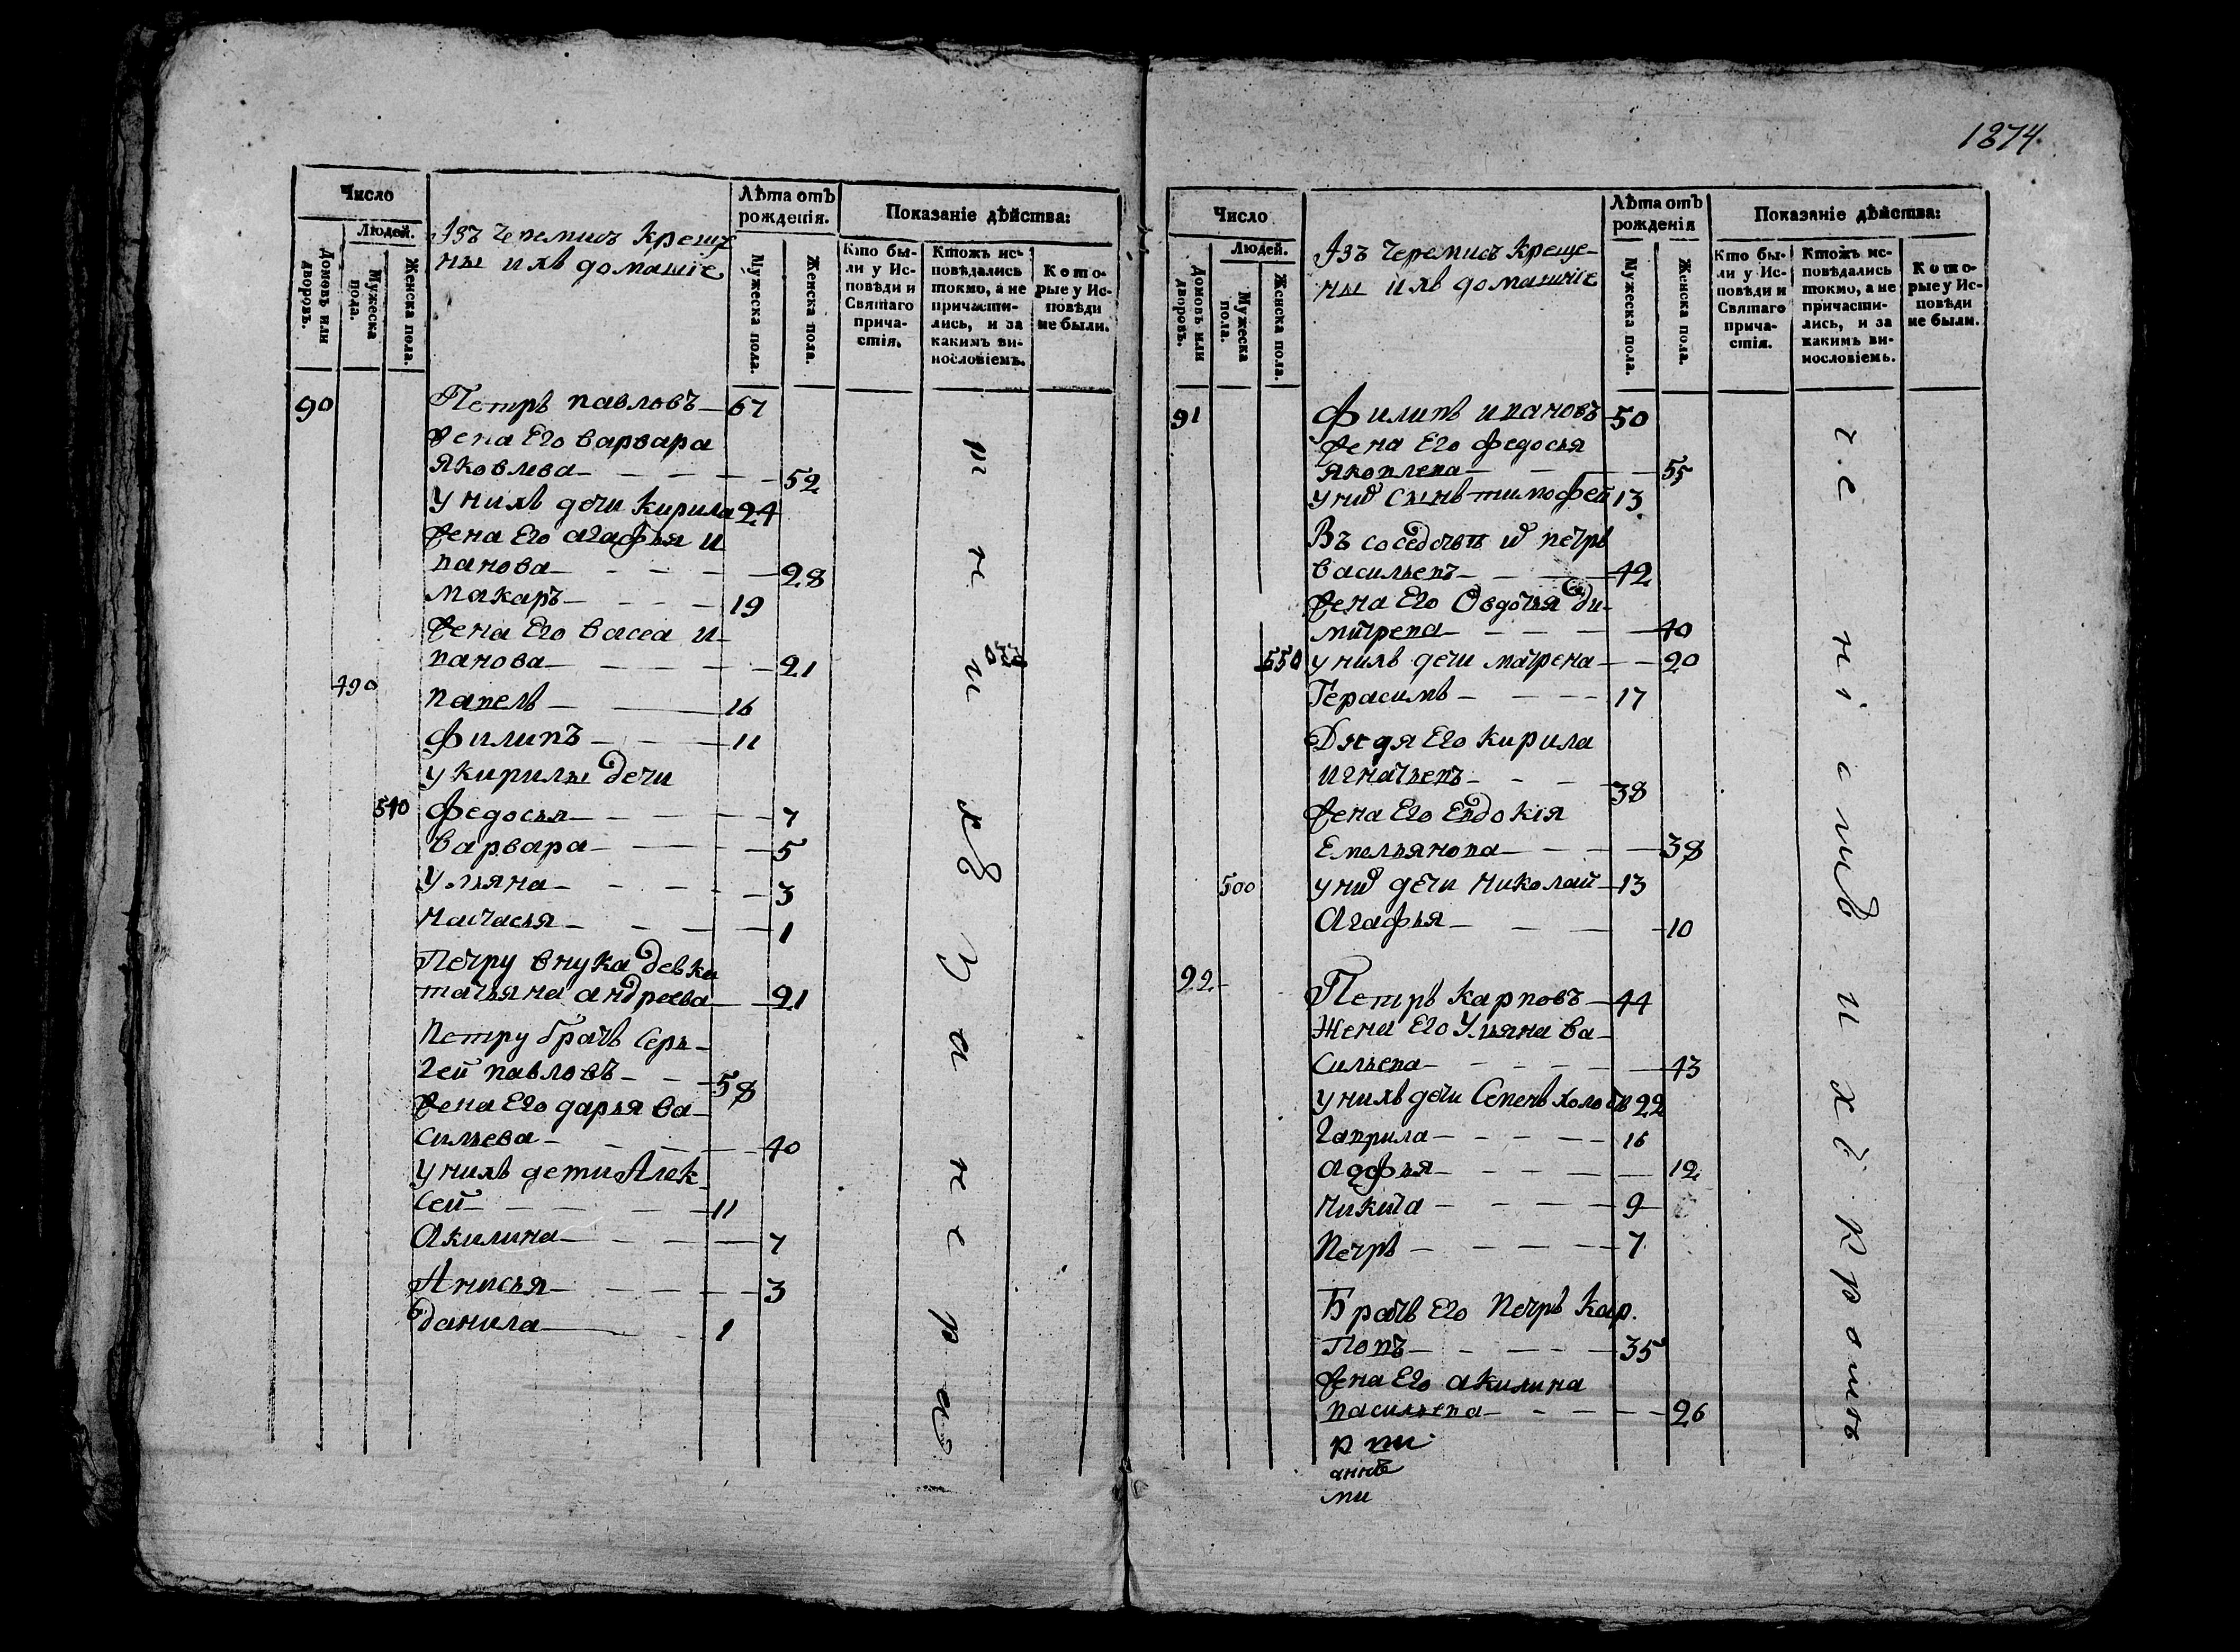 1874.
Число
Людей.
Домовъ или дворовъ.
Мужеска пола.
Женска пола.
Изъ Черемисъ Креще
ны ихъ домашніе
Лѣта отъ
рожденія.
Мужеска пола.
Женска пола.
Показаніе дѣйства:
Кто бы-
ли у Ис-
повѣди и
Святаго
прича-
стія.
Ктожъ ис-
повѣдались
токмо, а не
причасти-
лись, и за
какимъ ви-
нословіемъ.
Кото-
рые у Ис-
повѣди
не были.
90 Петръ павловъ 67
Жена Его варвара
Яковлева 52
У нихъ дети Кирила 24
Жена Его агафья и
ванова 28
Макаръ 19
Жена Его васса и
ванова 21
490 павелъ 16
Филипъ 11
у кирилы дети
540 Федосья 7
варвара 5
Ульяна 3
Настасья 1
Петру внука девка
татьяна андреева 21
Петру братъ Серъ
гей павловъ 58
Жена Его дарья ва
сильева 40
У нихъ дети Алек
сей 11
Акилина 7
Анисья 3
данила 1
Число
Людей.
Домовъ или дворовъ.
Мужеска пола.
Женска пола.
Изъ Черемисъ Креще-
ны ихъ домашніе
Лѣта отъ
рожденія
Мужеска пола.
Женска пола.
Показаніе дѣйства:
Кто бы-
ли у Ис-
повѣди и
Святаго
прича-
стія.
Ктожъ ис-
повѣдались
токмо, а не
причасти-
лись, и за
какимъ ви-
нословіемъ.
Кото-
рые у Ис-
повѣди
не были.
91 Филипъ ивановъ 50
Жена Его федосья
Яковлева 55
у нихъ сынъ тимофей 13
Въ соседстве петръ
васильевъ 42
Жена Его Овдотья ди-
митрева 40
550 у нихъ дети матрена 20
Герасимъ 17
Дядя Его кирила
игнатьевъ 38
Жена Его Евдокія
Емельянова 38
500 у нихъ дети николай 13
Агафья 10
92 Петръ карповъ 44
Жена Его Ульяна ва-
сильева 43
у нихъ дети Семенъ холостъ 22
гаврила 16
12
никита 9
Петръ 7
Братъ Его Петръ Кар.
повъ 35
Жена Его акилина
васильева 26